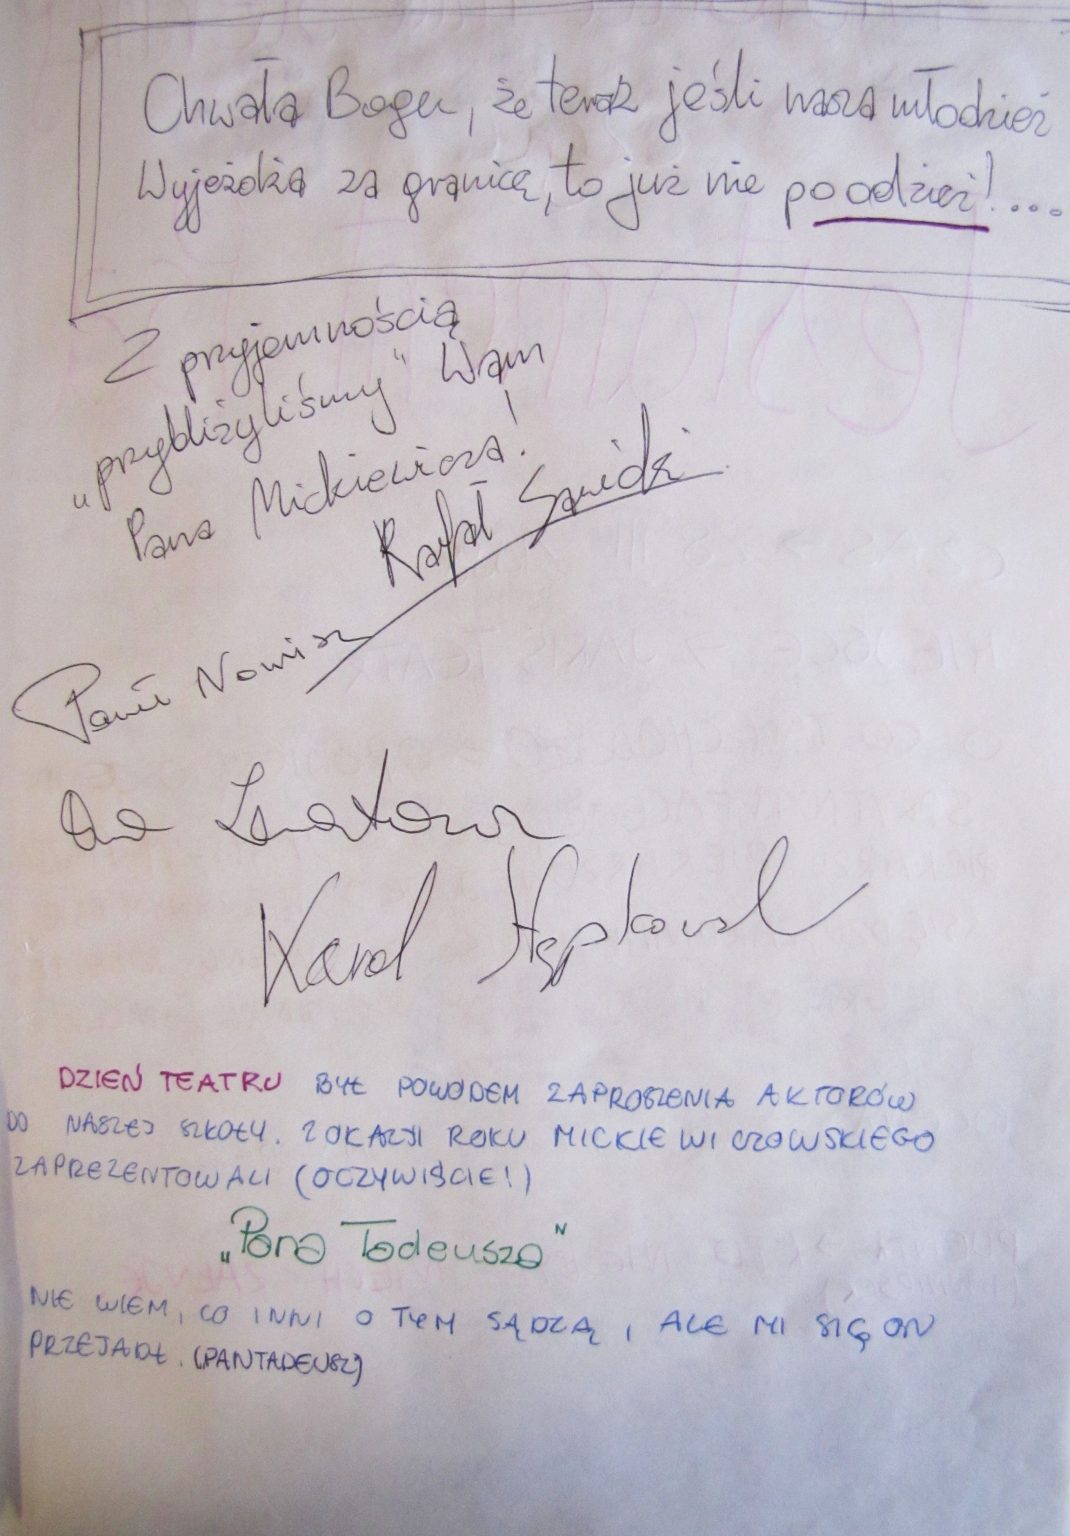 Chwała Bogu, że teraz jeśli nasza młodzież
wyjeżdża za granicę, to już nie po odzież!...
Z przyjemnością
„przybliżyliśmy" Wam
Pana Mickiewicza!
Rafał Sawicki
Paweł Nowisz
Karol
DZIEŃ TEATRU BYŁ POWODEM ZAPROSZENIA AKTORÓW
DO NASZEJ SZKOŁY. Z OKAZJI ROKU MICKIEWICZOWSKIEGO
ZAPREZENTOWALI (OCZYWIŚCIE!)
„Pana Tadeusza"
NIE WIEM, CO INNI O TYM SĄDZĄ, ALE MI SIĘ ON
PRZEJADŁ. (PANTADEUSZ)